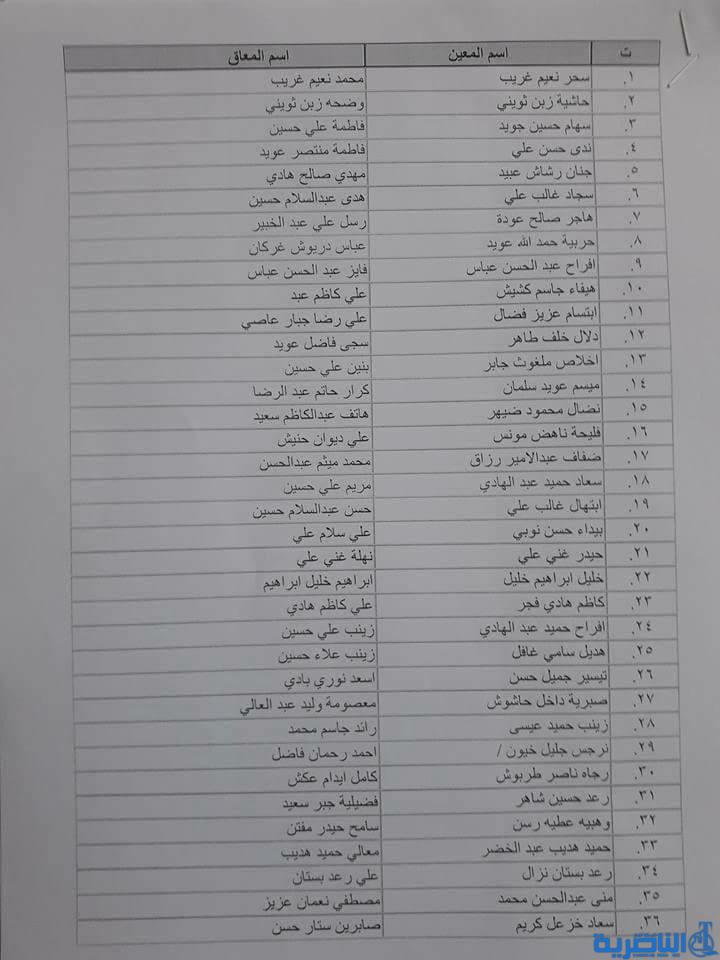 ت اسم المعين اسم المعاق
١. سحر نعيم غريب محمد نعيم غريب
٢. حاشية زبن ثويني وضحه زبن ثويني
٣. سهام حسين جويد فاطمة علي حسين
٤. ندى حسن علي فاطمة منتصر عويد
٥. جنان رشاش عبيد مهدي صالح هادي
٦. سجاد غالب علي هدى عبدالسلام حسين
٧. هاجر صالح عودة رسل علي عبد الخبير
٨. حربية حمد الله عويد عباس دريوش غركان
٩. افراح عبد الحسن عباس فايز عبد الحسن عباس
١٠. هيفاء جاسم كشيش علي كاظم عبد
١١. ابتسام عزيز فضال علي رضا جبار عاصي
١٢. دلال خلف طاهر سجى فاضل عويد
١٣. اخلاص ملغوث جابر بنين علي حسين
١٤. ميسم عويد سلمان كرار حاتم عبد الرضا
١٥. نضال محمود ضيهر هاتف عبدالكاظم سعيد
١٦. فليحة ناهض مونس علي ديوان حنيش
١٧. ضفاف عبدالامير رزاق محمد ميثم عبدالحسن
١٨. سعاد حميد عبد الهادي مريم علي حسين
١٩. ابتهال غالب علي حسن عبدالسلام حسين
٢٠. بيداء حسن نوبي علي سلام علي
٢١. حيدر غني علي نهلة غني علي
٢٢. خليل ابراهيم خليل ابراهيم خليل ابراهيم
٢٣. كاظم هادي فجر علي كاظم هادي
٢٤. افراح حميد عبد الهادي زينب علي حسين
٢٥. هديل سامي غافل زينب علاء حسين
٢٦. تيسير جميل حسن اسعد نوري بادي
٢٧. صبرية داخل حاشوش معصومة وليد عبد العالي
٢٨. زينب حميد عيسى رائد جاسم محمد
٢٩. نرجس جليل خيون / احمد رحمان فاضل
٣٠. رجاه ناصر طربوش كامل ايدام عكش
٣١. رعد حسين شاهر فضيلية جبر سعيد
٣٢. وهيبه عطيه رسن سامح حيدر مفتن
٣٣. حميد هديب عبد الخضر معالي حميد هديب
٣٤. رعد بستان نزال علي رعد بستان
٣٥. منى عبدالحسن محمد مصطفي نعمان عزيز
٣٦. سعاد خزعل كريم صابرين ستار حسن
الناصرية